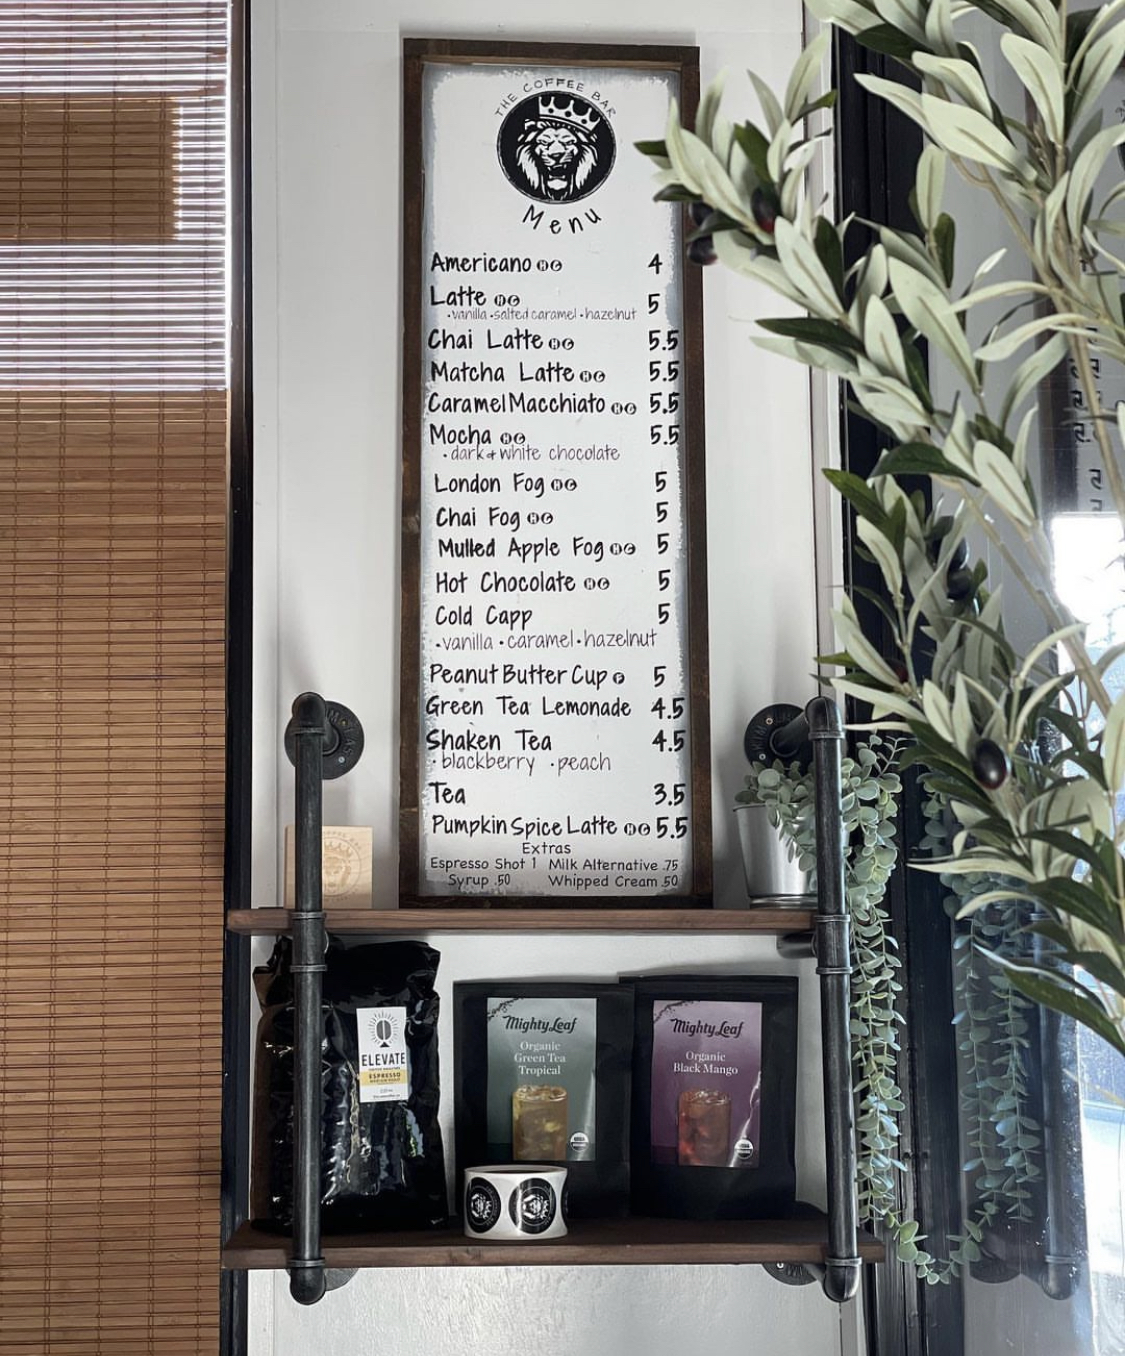 THE COFFEE BAR
Menu
Americano H C 4
Latte H C 5
• vanilla • salted caramel • hazelnut
Chai Latte H C 5.5
Matcha Latte H C 5.5
Caramel Macchiato H C 5.5
Mocha H C 5.5
• dark + white chocolate
London Fog H C 5
Chai Fog H C 5
Mulled Apple Fog H C 5
Hot Chocolate H C 5
Cold Capp 5
• vanilla • caramel • hazelnut
Peanut Butter Cup C 5
Green Tea Lemonade 4.5
Shaken Tea 4.5
• blackberry • peach
Tea 3.5
Pumpkin Spice Latte H C 5.5
Extras
Espresso Shot 1 Milk Alternative .75
Syrup .50 Whipped Cream .50
ELEVATE
ESPRESSO
Mighty Leaf
Organic
Green Tea
Tropical
Mighty Leaf
Organic
Black Mango